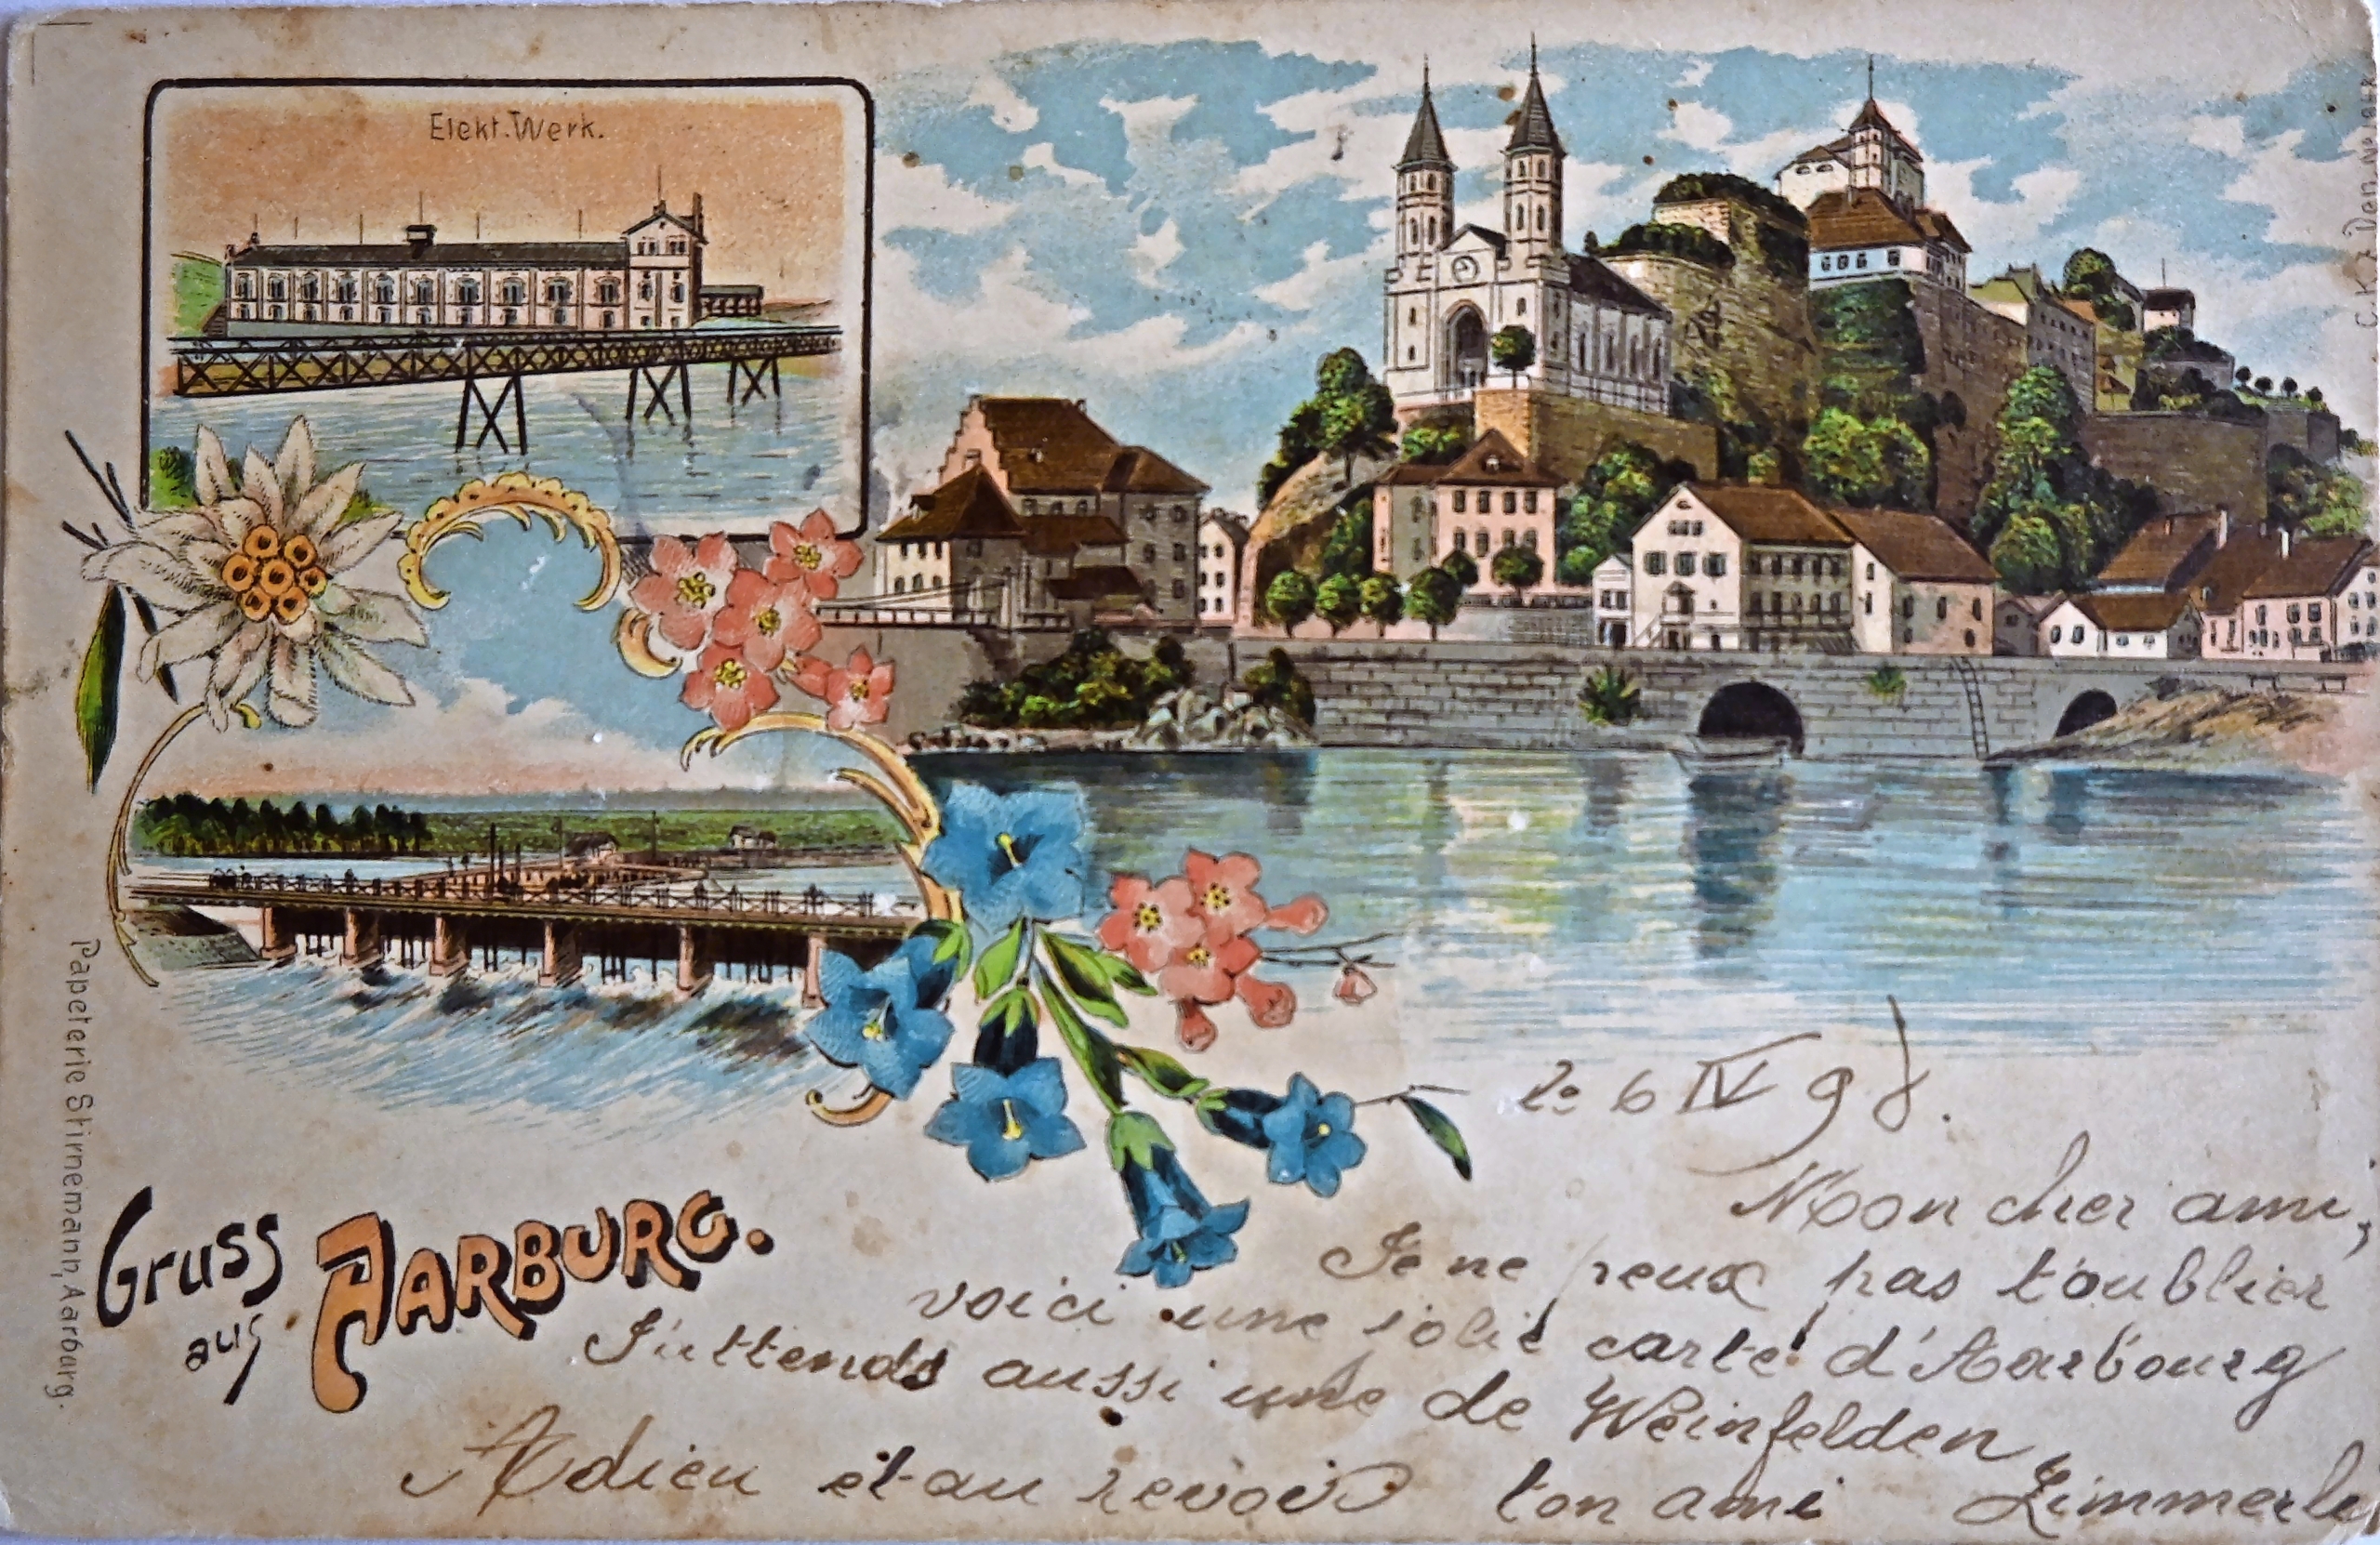 Elekt. Werk.
Papeterie Stirnemann, Aarburg.
Gruss
aus AARBURG.
le 6 IV 98.
Mon cher ami,
Je ne peux pas t'oublier
voici une jolie carte d'Aarbourg
J'attends aussi une de Weinfelden
Adieu et au revoir ton ami Zimmerli